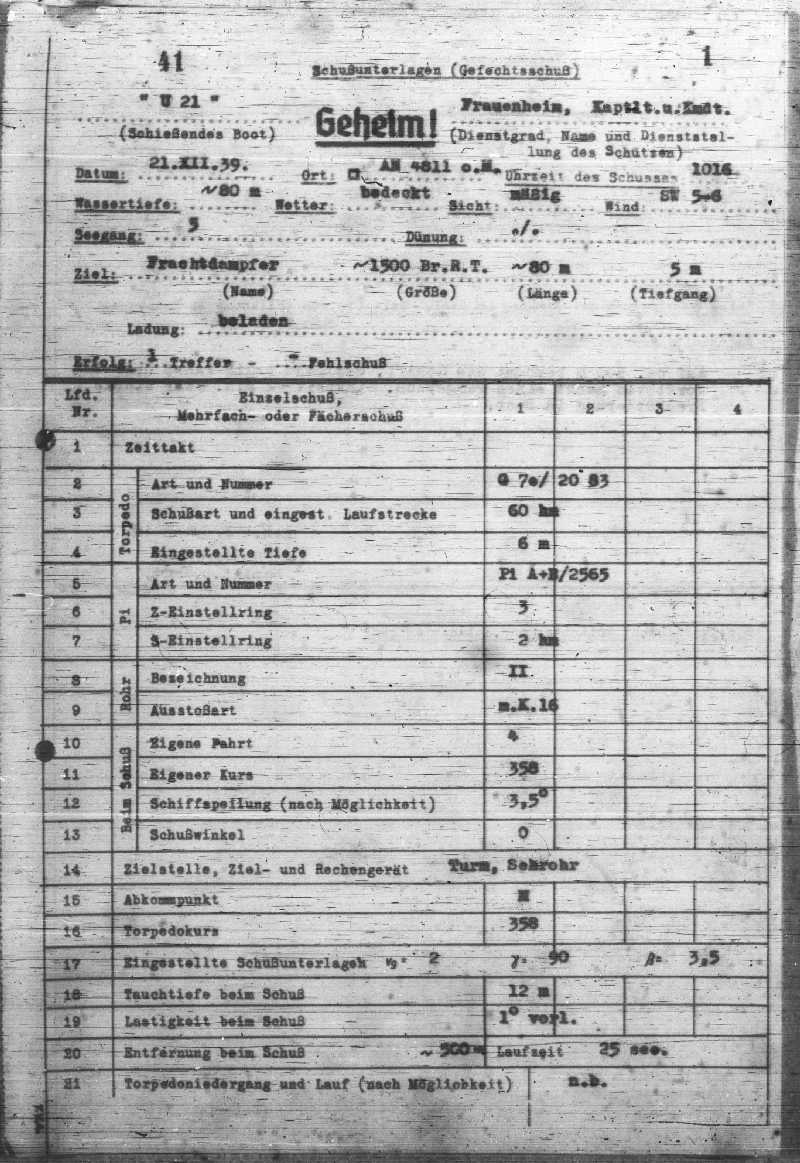 41
1
Schußunterlagen (Gefechtsschuß)
" U 21 "
Frauenheim, Kaptlt.u.Kmdt.
(Schießendes Boot)
Geheim!
(Dienstgrad, Name und Dienststel-
lung des Schützen)
Datum: 21.XII.39. Ort: AN 4811 o.M. Uhrzeit des Schusses 1016
Wassertiefe: ~80 m Wetter: bedeckt Sicht: mäßig Wind: SW 5-6
Seegang: 5 Dünung: ./.
Ziel: Frachtdampfer ~1500 Br.R.T. ~80 m 5 m
(Name) (Größe) (Länge) (Tiefgang)
Ladung: beladen
Erfolg: 1 Treffer - - Fehlschuß
Lfd. Nr. Einzelschuß, Mehrfach- oder Fächerschuß 1 2 3 4
1 Zeittakt
Torpedo
2 Art und Nummer G 7e/ 20 83
3 Schußart und eingest. Laufstrecke 60 hm
4 Eingestellte Tiefe 6 m
Pi
5 Art und Nummer Pi A+B/2565
6 Z-Einstellring 3
7 S-Einstellring 2 hm
Rohr
8 Bezeichnung II
9 Ausstoßart m.K.16
Beim Schuß
10 Eigene Fahrt 4
11 Eigener Kurs 358
12 Schiffspeilung (nach Möglichkeit) 3,5°
13 Schußwinkel 0
14 Zielstelle, Ziel- und Rechengerät Turm, Sehrohr
15 Abkommpunkt M
16 Torpedokurs 358
17 Eingestellte Schußunterlagen vg= 2 γ= 90 β= 3,5
18 Tauchtiefe beim Schuß 12 m
19 Lastigkeit beim Schuß 1° vorl.
20 Entfernung beim Schuß ~ 500 m Laufzeit 25 sec.
21 Torpedoniedergang und Lauf (nach Möglichkeit) n.b.